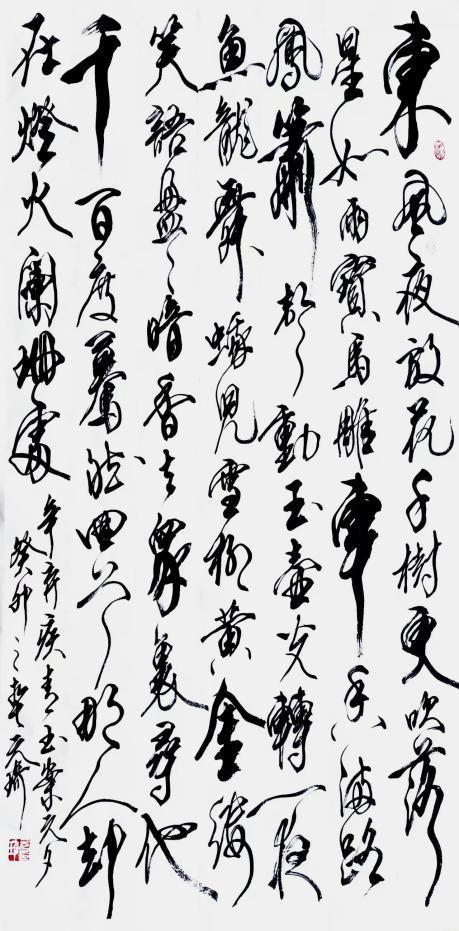 東風夜放花千樹更吹落
星如雨寶馬雕車香滿路
鳳簫聲動玉壺光轉一夜
魚龍舞蛾兒雪柳黃金縷
笑語盈〻暗香去眾裏尋他
千百度驀然回首那人卻
在燈火闌珊處
辛棄疾青玉案元夕
癸卯之